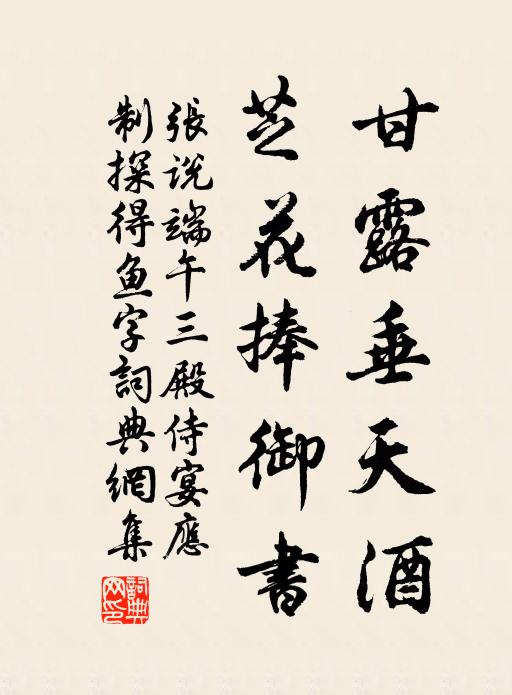 甘露垂天酒
芝花捧御書
張説端午三殿侍宴應
制探得魚字詞典網集
詞典網印